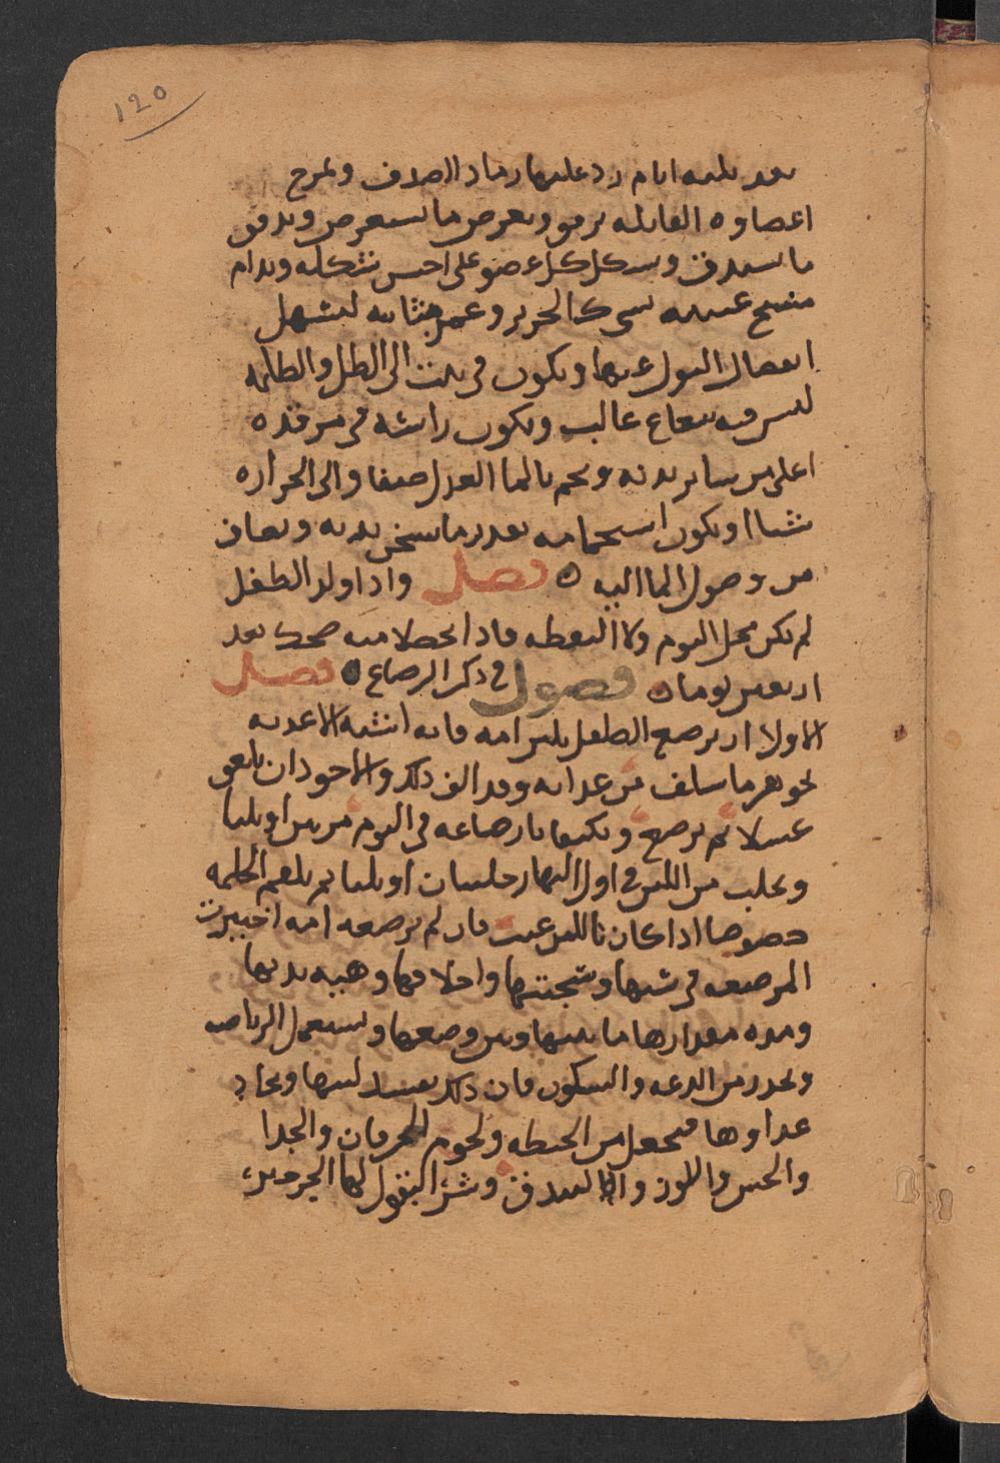 ١٢٥
بعد ثلثه ايام رد عليها رماد الصدف وتمرخ
اعضاوه القابله برفق ويعرض ما يستعرض ويدقق
ما يستدق ويشكل كل عضو على احسن شكله ويدام
مسح عينيه بشى كالحرير وغمز مثانته ليسهل
انفصال البول عنها ويكون فى بيت الى الظل والظلمه
ليس فيه شعاع غالب ويكون راسه فى مرقده
اعلى من ساير بدنه ويحم بالما العدل صيفا والى الحراره
شتا ويكون استحمامه بقدر ما يسخن بدنه ويصان
من وصول الما اليه ه فصل واذا ولد الطفل
لم يكن محل النوم ولا اليقظه فاذا تحصلا منه ضحك بعد
اربعين يوما ه فصول فى ذكر الرضاع ه فصل
الاولا ان يرضع الطفل بلبن امه فانه اشبه الاغذيه
بجوهر ما سلف من غذائه وقد الف ذلك والاجود ان يلعق
عسلا ثم يرضع ويكتفا بارضاعه فى اليوم مرتين او ثلثا
ويحلب من اللبن فى اول النهار حلبتان او ثلثا ثم يلقم الحلمه
خصوصا اذا كان باللبن عيب فان لم ترضعه امه اختيرت
المرضعه فى سنها وسحنتها واخلاقها وهيه ثديها
ومده مقدارها ما بينها وبين وضعها وتستعمل الرياضه
وتحذر من الدعه والسكون فان ذلك يفسد لبنها ويجاد
غذاوها فيجعل من الحنطه ولحوم الخرفان والجدا
والخس واللوز والبندق وشر البقول لها الجرجير